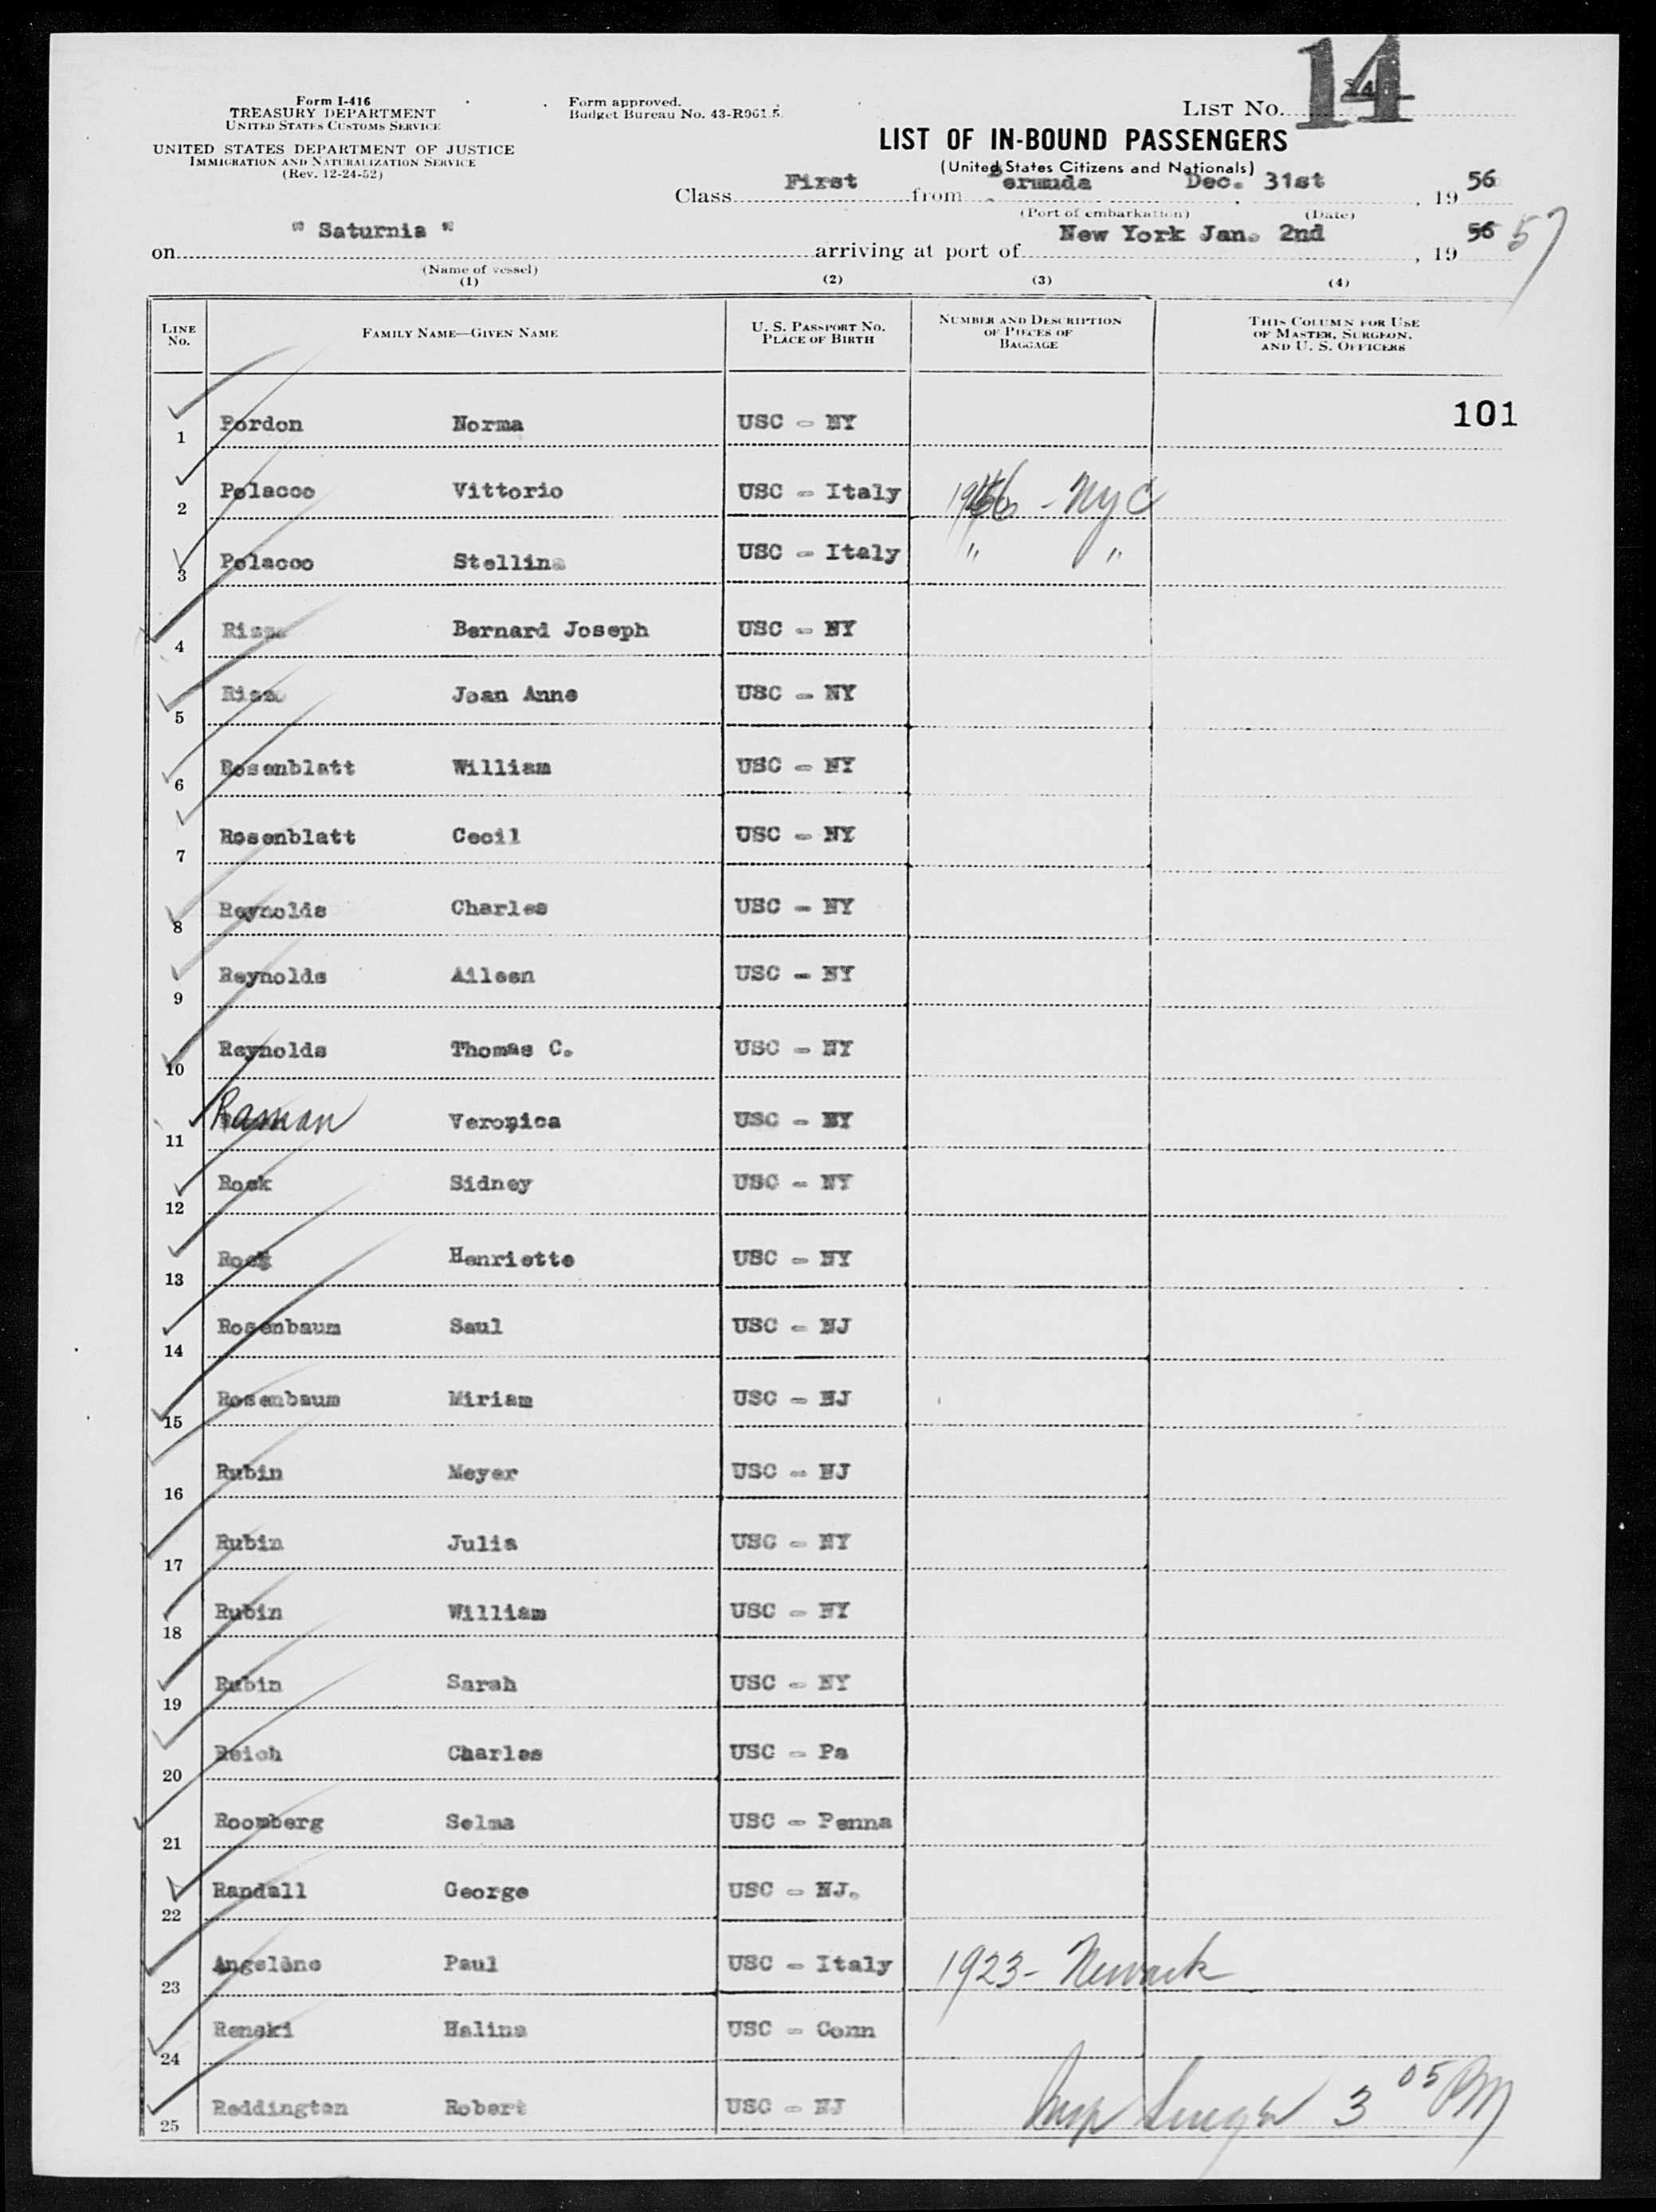 14
Form I-416
TREASURY DEPARTMENT
UNITED STATES CUSTOMS SERVICE
UNITED STATES DEPARTMENT OF JUSTICE
IMMIGRATION AND NATURALIZATION SERVICE
(Rev. 12-24-52)
Form approved.
Budget Bureau No. 43-R061.5.
LIST NO.
LIST OF IN-BOUND PASSENGERS
(United States Citizens and Nationals)
Class First from Bermuda Dec. 31st, 19 56
(Port of embarkation) (Date)
on " Saturnia " arriving at port of New York Jan. 2nd, 19 56 57
(Name of vessel)
(1) (2) (3) (4)
LINE NO. FAMILY NAME—GIVEN NAME U. S. PASSPORT NO. PLACE OF BIRTH NUMBER AND DESCRIPTION OF PIECES OF BAGGAGE THIS COLUMN FOR USE OF MASTER, SURGEON, AND U. S. OFFICERS
101
1 Pordon Norma USC - NY
2 Polacco Vittorio USC - Italy - NYC
3 Polacco Stellina USC - Italy " "
4 Bernard Joseph USC - NY
5 Joan Anne USC - NY
6 Rosenblatt William USC - NY
7 Rosenblatt Cecil USC - NY
8 Reynolds Charles USC - NY
9 Reynolds Aileen USC - NY
10 Reynolds Thomas C. USC - NY
11 Raman Veronica USC - NY
12 Rock Sidney USC - NY
13 Rock Henriette USC - NY
14 Rosenbaum Saul USC - NJ
15 Rosenbaum Miriam USC - NJ
16 Rubin Meyer USC - NJ
17 Rubin Julia USC - NY
18 Rubin William USC - NY
19 Rubin Sarah USC - NY
20 Reich Charles USC - Pa
21 Roomberg Selma USC - Penna
22 Randall George USC - NJ.
23 Angelàne Paul USC - Italy 1923 - Newark
24 Renski Halina USC - Conn
25 Reddington Robert USC - NJ
Insp 3 05 PM